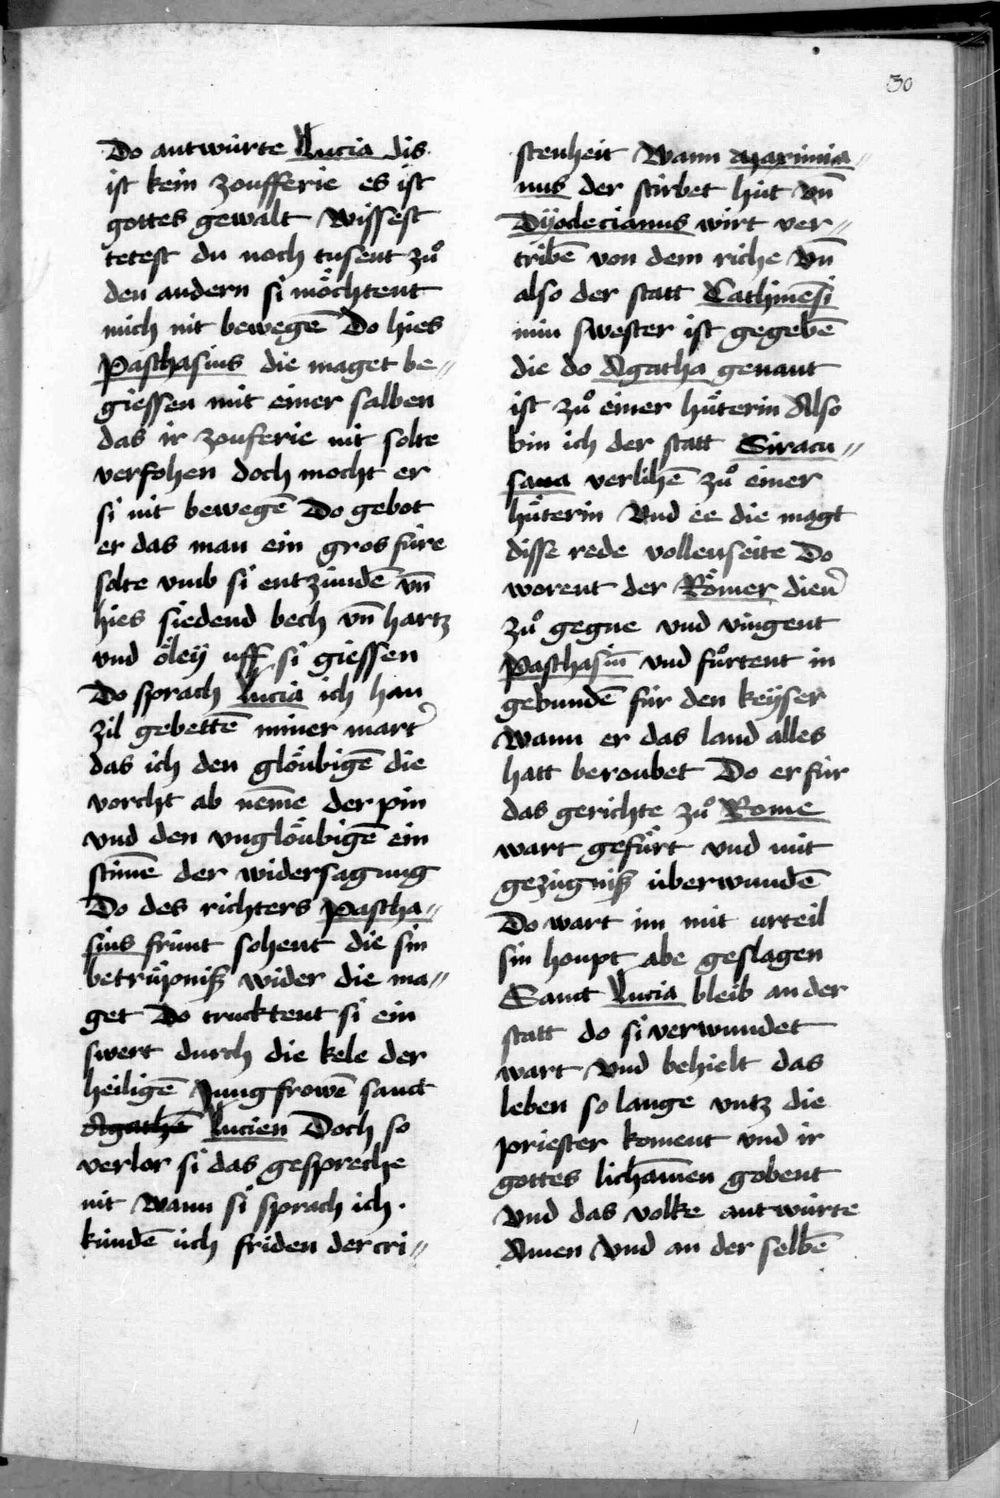 30
Do antwürte Lucia dis
ist kein zoufferie es ist
gottes gewalt Wissest
tetest du noch tusent zuͦ
den andern si moͤchtent
mich nit bewegē Do hies
Paschasius die maget be〃
giessen mit einer salben
das ir zouferie nit solte
verfohen doch mocht er
si nit bewegē Do gebot
er das man ein gros füre
solte vmb si entzündē vn̄
hies siedend bech vn̄ hartz
vnd oͤley uff si giessen
Do sprach Lucia ich han
zil gebettē miner marť
das ich den gloͤubigē die
vorcht ab neme der pin
vnd den vngloͤubigē ein
stim̄e der widersagung
Do des richters Pascha〃
sius frünt sohent die sin
betruͤpniß wider die ma〃
get Do trucktent si ein
swert durch die kele der
heiligē Jungfrowē sanct
Agathē Lucien Doch so
verlor si das gespreche
nit Wann si sprach ich
kündē üch friden der cri〃
stenheit Wann Maximia〃
nus der stirbet hüt vn̄
Dyodecianus wirt ver〃
tribē von dem riche Vn̄
also der statt Cathinēsi
min swester ist gegebē
die do Agatha genant
ist zuͦ einer huͤterin Also
bin ich der statt Siracu〃
sana verlihē zuͦ einer
huͤterin Vnd ee die magt
disse rede vollenseite Do
worent der Roͤmer dien̄
zuͦ gegne vnd viengent
Paschasiū vnd fuͦrtent in
gebundē für den keyser
Wann er das land alles
hatt beroubet Do er für
das gerichte zuͦ Rome
wart gefuͤrt vnd mit
gezügniß überwundē
Do wart im mit urteil
sin houpt abe geslagen
Sanct Lucia bleib an der
statt do si verwundet
wart Vnd behielt das
leben so lange vntz die
priester koment vnd ir
gottes lichamen gobent
Vnd das volke antwürte
Amen Vnd an der selbē